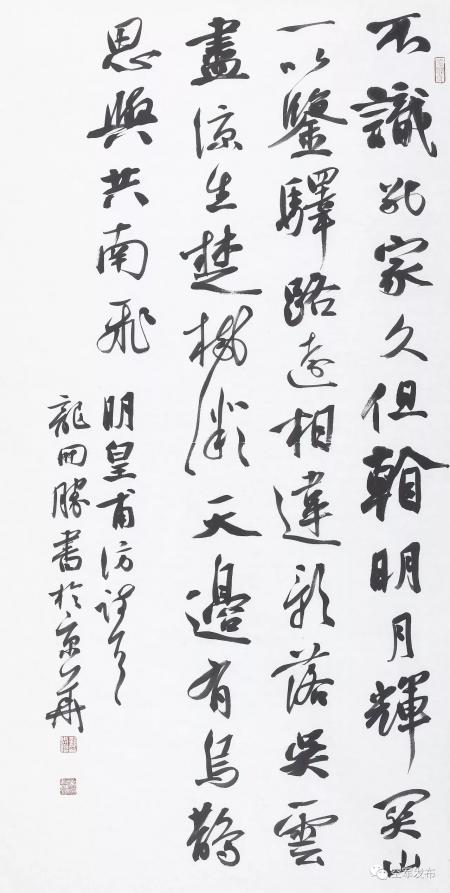 不識別家久但看明月輝關山
一以鑒驛路遠相違影落吳雲
盡涼生楚樹微天邊有烏鵲
思與共南飛
明皇甫汸詩一首
龍開勝書於京華
发布